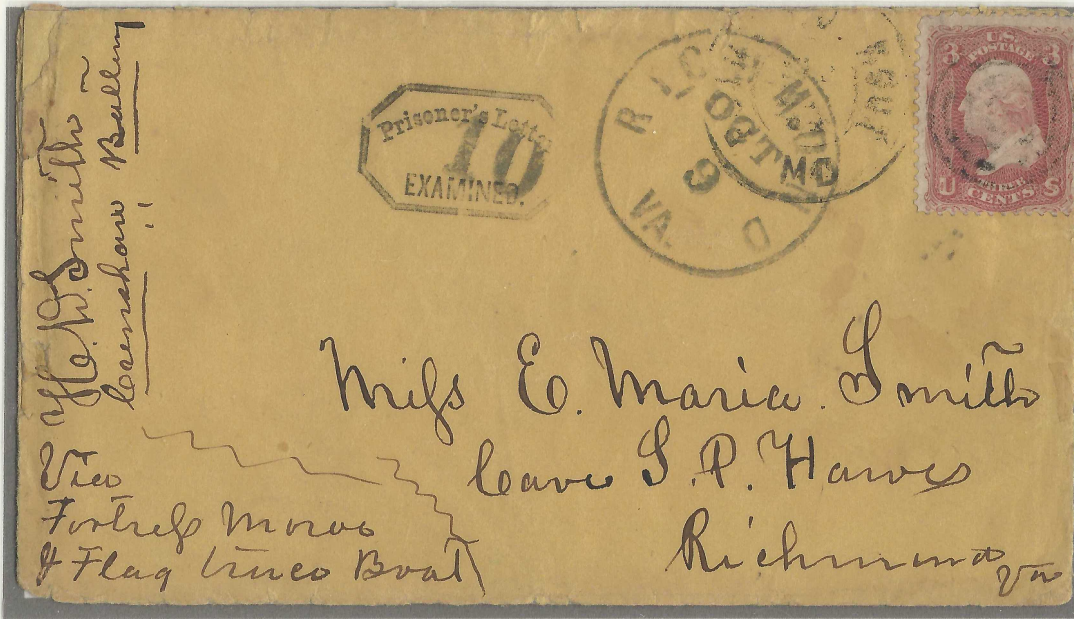 H. W. Smith
Crenshaw Battery
Prisoner's Lette
10
EXAMINED.
RICHMOND
OCT
9
VA.
MD
3 U.S. 3
POSTAGE
U CENTS S
Mifs E. Maria. Smith
Care S. P. Hawes
Richmond
Va
Via
Fortrefs Monroe
& Flag truce Boat